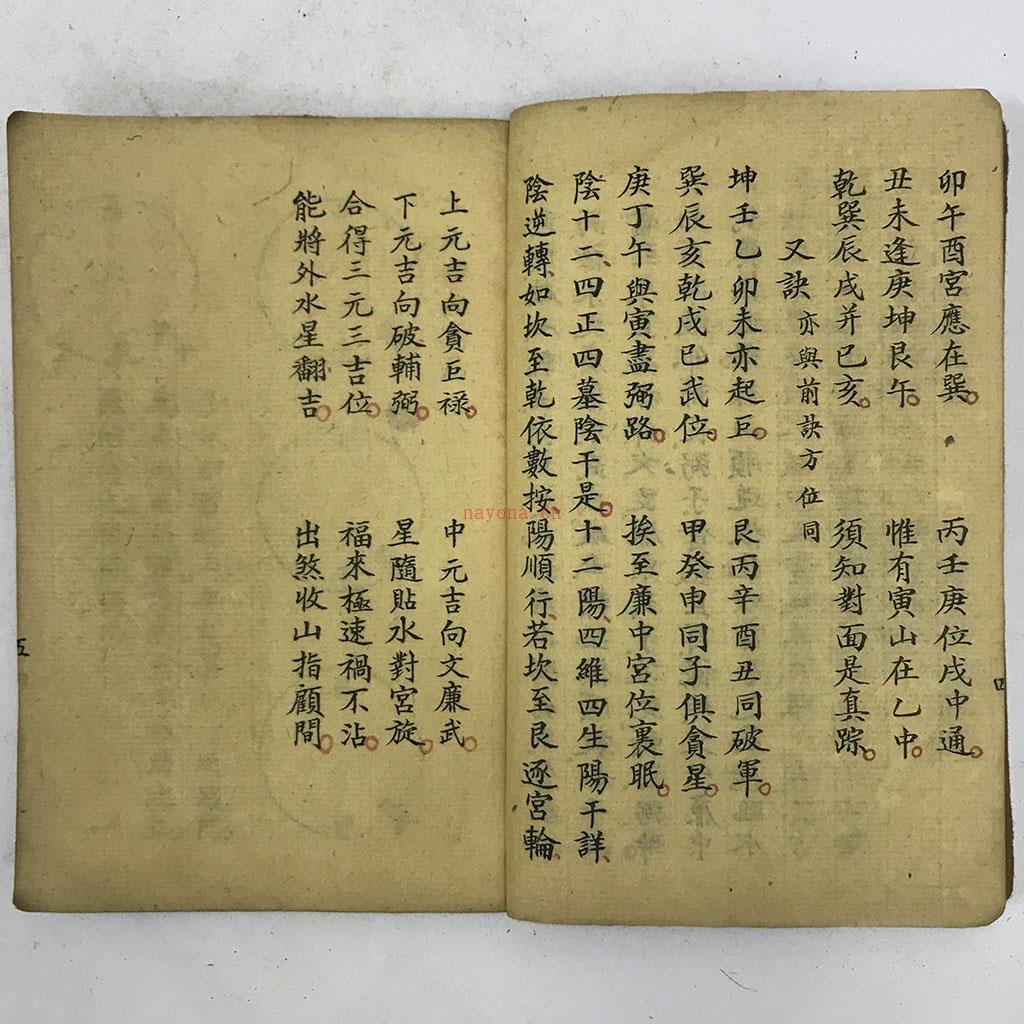 卯午酉宮應在巽。丙壬庚位戌中通。
丑未逢庚坤艮午。惟有寅山在乙中。
乾巽辰戌并巳亥。須知對面是真踪。
又訣 亦與前訣方位同
坤壬乙卯未亦起巨。艮丙辛酉丑同破軍。
巽辰亥乾戌巳武位。甲癸申同子俱貪星。
庚丁午與寅盡弼路。挨至廉中宮位裏眠。
陰十二四正四墓陰干是。十二陽、四維四生陽干詳、
陰逆轉、如坎至乾依數按、陽順行、若坎至艮逐宮輪、
四
上元吉向貪巨祿。中元吉向文廉武。
下元吉向破輔弼。星隨貼水對宮旋。
合得三元三吉位。福來極速禍不沾。
能將外水星翻吉。出煞收山指顧間。
五
nayona.cn